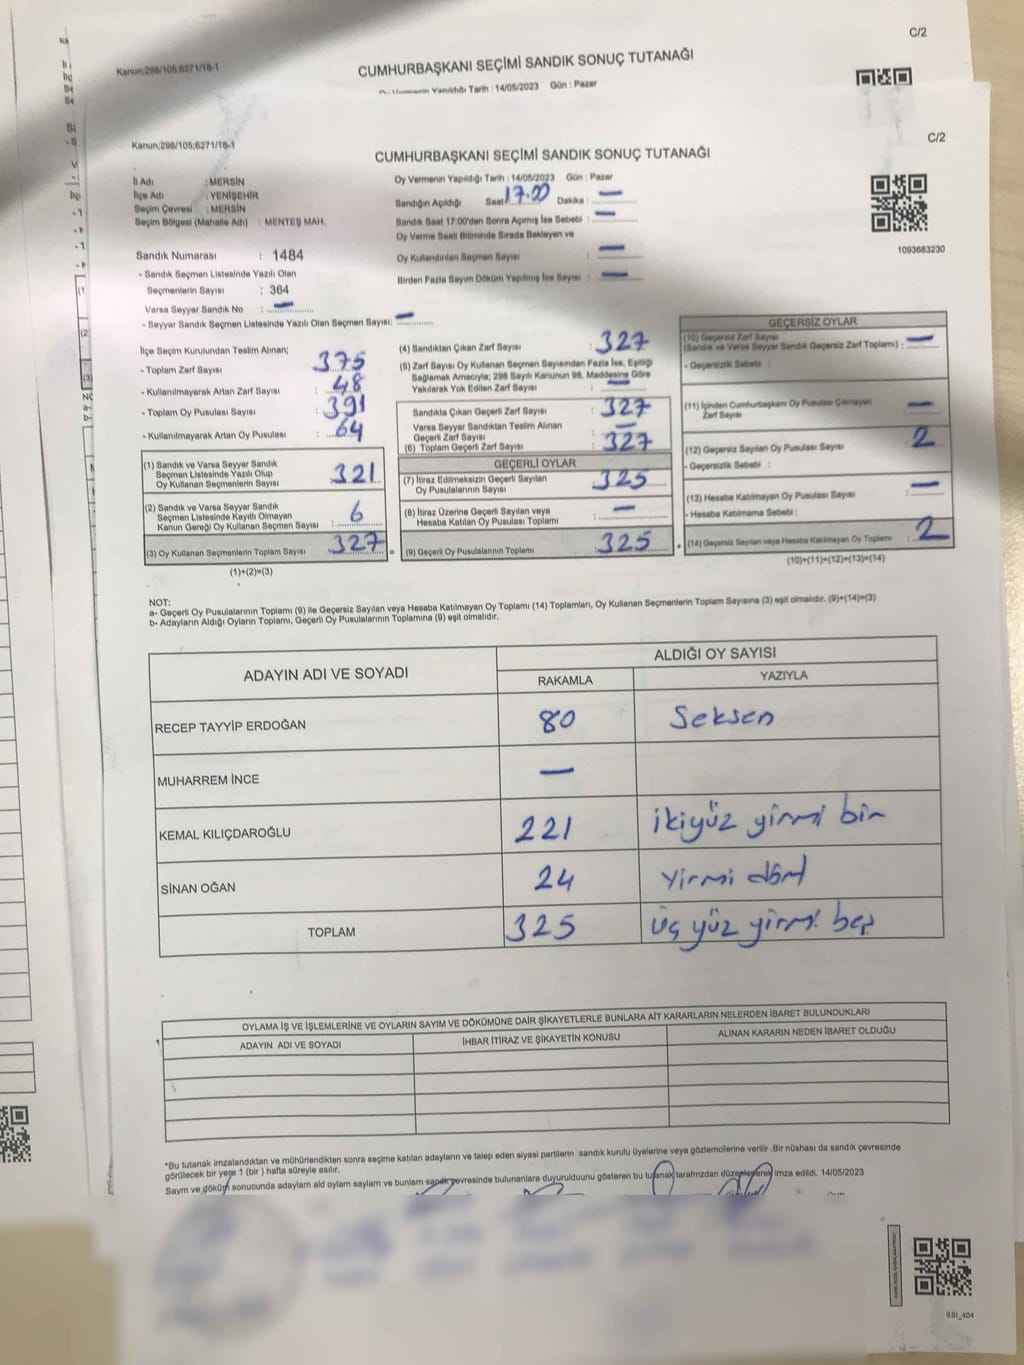 C/2
Kanun;298/105;6271/18-1
CUMHURBAŞKANI SEÇİMİ SANDIK SONUÇ TUTANAĞI
Tarih : 14/05/2023 Gün : Pazar
C/2
Kanun;298/105;6271/18-1
CUMHURBAŞKANI SEÇİMİ SANDIK SONUÇ TUTANAĞI
İl Adı : MERSİN
İlçe Adı : YENİŞEHİR
Seçim Çevresi : MERSİN
Seçim Bölgesi (Mahalle Adı) : MENTEŞ MAH.
Oy Vermenin Yapıldığı Tarih : 14/05/2023 Gün : Pazar
Sandığın Açıldığı Saat 17.00 Dakika : —
Sandık Saat 17:00'den Sonra Açımış İse Sebebi : —
Oy Verme Saati Bitiminde Sırada Bekleyen ve
Oy Kullandırılan Seçmen Sayısı : —
Birden Fazla Sayım Döküm Yapılmış İse Sayısı : —
1093683230
Sandık Numarası : 1484
- Sandık Seçmen Listesinde Yazılı Olan
Seçmenlerin Sayısı : 364
Varsa Seyyar Sandık No : —
- Seyyar Sandık Seçmen Listesinde Yazılı Olan Seçmen Sayısı: —
İlçe Seçim Kurulundan Teslim Alınan;
- Toplam Zarf Sayısı : 375
- Kullanılmayarak Artan Zarf Sayısı : 48
- Toplam Oy Pusulası Sayısı : 391
- Kullanılmayarak Artan Oy Pusulası : 64
(1) Sandık ve Varsa Seyyar Sandık
Seçmen Listesinde Yazılı Olup
Oy Kullanan Seçmenlerin Sayısı : 321
(2) Sandık ve Varsa Seyyar Sandık
Seçmen Listesinde Kayıtlı Olmayan
Kanun Gereği Oy Kullanan Seçmen Sayısı : 6
(3) Oy Kullanan Seçmenlerin Toplam Sayısı : 327
(1)+(2)=(3)
(4) Sandıktan Çıkan Zarf Sayısı : 327
(5) Zarf Sayısı Oy Kullanan Seçmen Sayısından Fazla İse, Eşitliği
Sağlamak Amacıyla; 298 Sayılı Kanunun 98. Maddesine Göre
Yakılarak Yok Edilen Zarf Sayısı : —
Sandıkta Çıkan Geçerli Zarf Sayısı : 327
Varsa Seyyar Sandıktan Teslim Alınan
Geçerli Zarf Sayısı : —
(6) Toplam Geçerli Zarf Sayısı : 327
GEÇERLİ OYLAR
(7) İtiraz Edilmeksizin Geçerli Sayılan
Oy Pusulalarının Sayısı : 325
(8) İtiraz Üzerine Geçerli Sayılan veya
Hesaba Katılan Oy Pusulası Toplamı : —
= (9) Geçerli Oy Pusulalarının Toplamı : 325
GEÇERSİZ OYLAR
(10) Geçersiz Zarf Sayısı
(Sandık ve Varsa Seyyar Sandık Geçersiz Zarf Toplamı) : —
- Geçersizlik Sebebi :
(11) İçinden Cumhurbaşkanı Oy Pusulası Çıkmayan
Zarf Sayısı : —
(12) Geçersiz Sayılan Oy Pusulası Sayısı : 2
- Geçersizlik Sebebi :
(13) Hesaba Katılmayan Oy Pusulası Sayısı : —
- Hesaba Katılmama Sebebi :
+ (14) Geçersiz Sayılan veya Hesaba Katılmayan Oy Toplamı : 2
(10)+(11)+(12)+(13)=(14)
NOT:
a- Geçerli Oy Pusulalarının Toplamı (9) ile Geçersiz Sayılan veya Hesaba Katılmayan Oy Toplamı (14) Toplamları, Oy Kullanan Seçmenlerin Toplam Sayısına (3) eşit olmalıdır. (9)+(14)=(3)
b- Adayların Aldığı Oyların Toplamı, Geçerli Oy Pusulalarının Toplamına (9) eşit olmalıdır.
ADAYIN ADI VE SOYADI ALDIĞI OY SAYISI
RAKAMLA YAZIYLA
RECEP TAYYİP ERDOĞAN 80 Seksen
MUHARREM İNCE —
KEMAL KILIÇDAROĞLU 221 ikiyüz yirmi bir
SİNAN OĞAN 24 Yirmi dört
TOPLAM 325 üç yüz yirmi beş
OYLAMA İŞ VE İŞLEMLERİNE VE OYLARIN SAYIM VE DÖKÜMÜNE DAİR ŞİKAYETLERLE BUNLARA AİT KARARLARIN NELERDEN İBARET BULUNDUKLARI
ADAYIN ADI VE SOYADI İHBAR İTİRAZ VE ŞİKAYETİN KONUSU ALINAN KARARIN NEDEN İBARET OLDUĞU
*Bu tutanak imzalandıktan ve mühürlendikten sonra seçime katılan adayların ve talep eden siyasi partilerin sandık kurulu üyelerine veya gözlemcilerine verilir .Bir nüshası da sandık çevresinde
görülecek bir yere 1 (bir ) hafta süreyle asılır.
Sayım ve döküm sonucunda adayların ald oyların sayların ve bunların sandık çevresinde bulunanlara duyurulduunu gösteren bu tutanak tarafımzdan düzenlenerek imza edildi. 14/05/2023
SSI_404